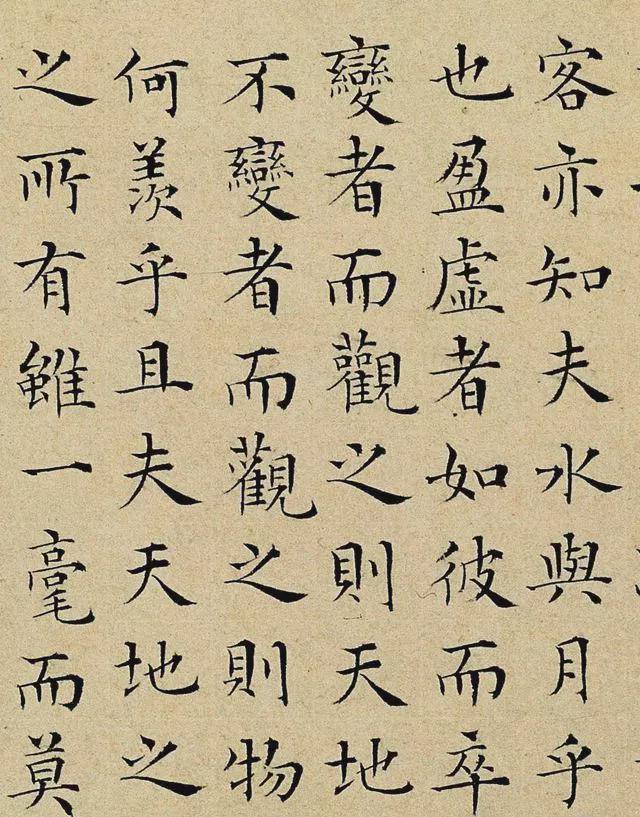 客亦知夫水與月乎
也盈虛者如彼而卒
變者而觀之則天地
不變者而觀之則物
何羨乎且夫天地之
之所有雖一毫而莫